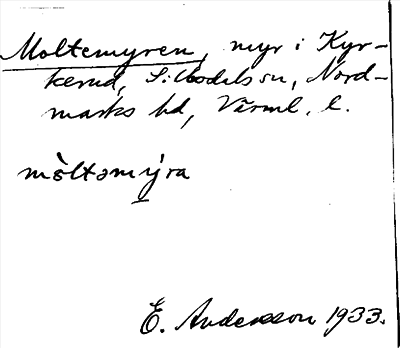 Moltemyren, myr i Kyr-
kerud, Sillbodals sn, Nord-
marks hd, Värml. l.
mòltəmýra
E. Andersson 1933.